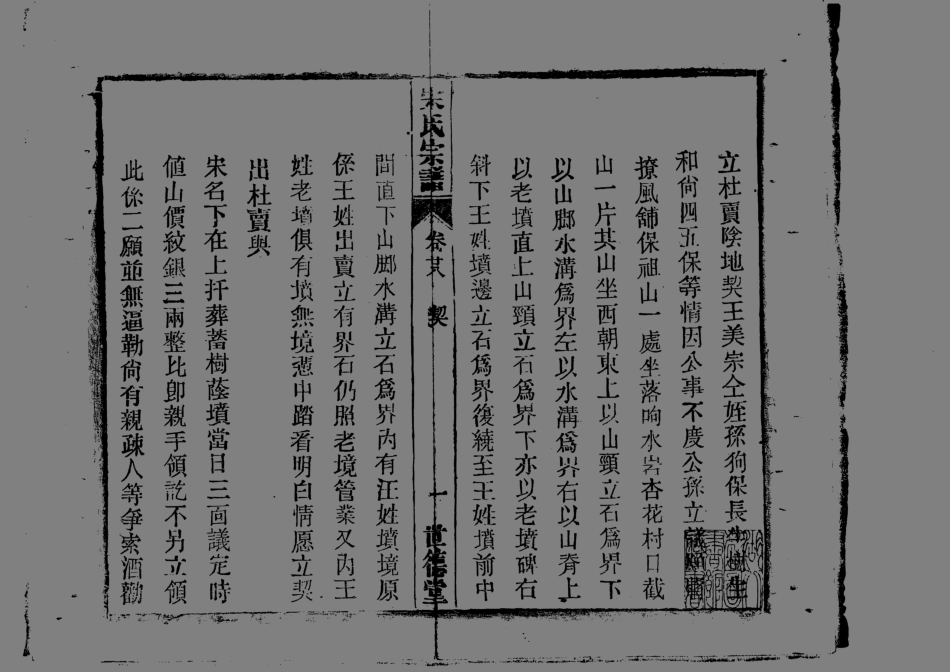 立杜賣陰地契王美宗仝姪孫狗保長生樹生
和尙四五保等情因公事不度公孫立議願書
撩風舖保祖山一處坐落响水岩杏花村口截
山一片其山坐西朝東上以山頸立石爲界下
以山脚水溝爲界左以水溝爲界右以山脊上
以老墳直上山頸立石爲界下亦以老墳碑右
斜下王姓墳邊立石爲界復繞至王姓墳前中
宋氏宗譜
卷廿八 契
一 世德堂
間直下山脚水溝立石爲界內有汪姓墳境原
係王姓出賣立有界石仍照老境管業又內王
姓老墳俱有墳無境憑中踏看明白情愿立契
出杜賣與
宋名下在上扞葬蓄樹蔭墳當日三面議定時
値山價紋銀三兩整比卽親手領訖不另立領
此係二願並無逼勒尙有親疎人等爭索酒勸